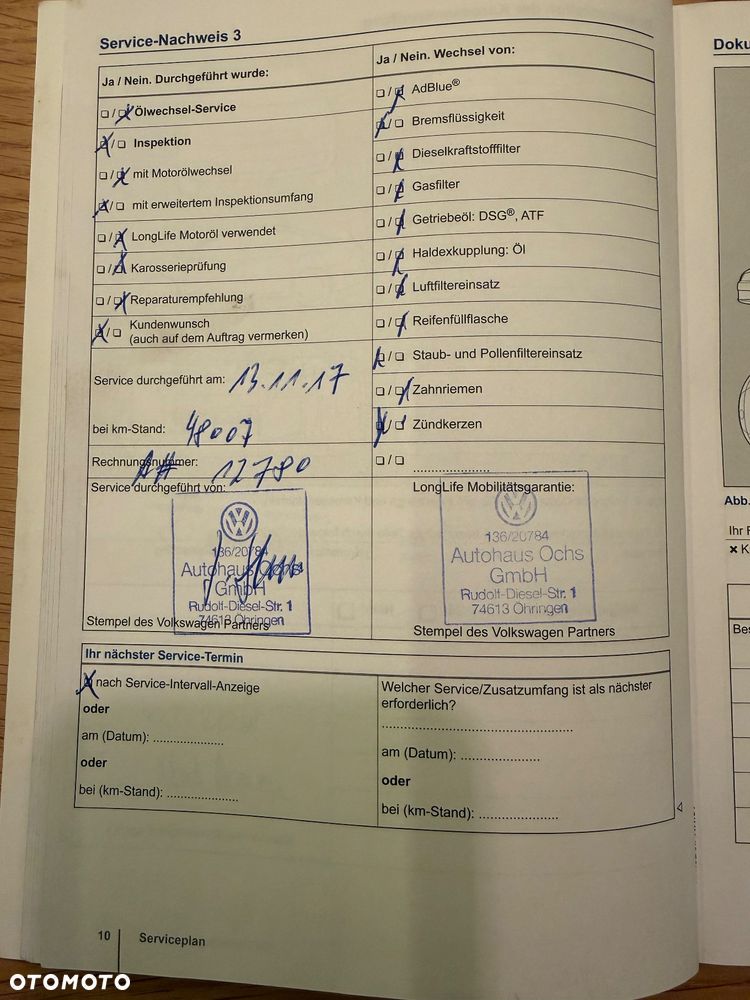 Service-Nachweis 3
Ja / Nein. Durchgeführt wurde:
☐ / ☒ Ölwechsel-Service
☒ / ☐ Inspektion
☐ / ☒ mit Motorölwechsel
☒ / ☐ mit erweitertem Inspektionsumfang
☐ / ☒ LongLife Motoröl verwendet
☐ / ☒ Karosserieprüfung
☐ / ☒ Reparaturempfehlung
☒ / ☐ Kundenwunsch
(auch auf dem Auftrag vermerken)
Service durchgeführt am: 13.11.17
bei km-Stand: 48007
Rechnungsnummer: 12780
Service durchgeführt von:
136/20784
Autohaus Ochs
GmbH
Rudolf-Diesel-Str. 1
74613 Öhringen
Stempel des Volkswagen Partners
Ja / Nein. Wechsel von:
☐ / ☒ AdBlue®
☒ / ☐ Bremsflüssigkeit
☐ / ☒ Dieselkraftstofffilter
☐ / ☒ Gasfilter
☐ / ☒ Getriebeöl: DSG®, ATF
☐ / ☒ Haldexkupplung: Öl
☐ / ☒ Luftfiltereinsatz
☐ / ☒ Reifenfüllflasche
☒ / ☐ Staub- und Pollenfiltereinsatz
☐ / ☒ Zahnriemen
☒ / ☐ Zündkerzen
☐ / ☐ .....................
LongLife Mobilitätsgarantie:
136/20784
Autohaus Ochs
GmbH
Rudolf-Diesel-Str. 1
74613 Öhringen
Stempel des Volkswagen Partners
Ihr nächster Service-Termin
☒ nach Service-Intervall-Anzeige
oder
am (Datum): ....................
oder
bei (km-Stand): ....................
Welcher Service/Zusatzumfang ist als nächster
erforderlich?
......................................................
am (Datum): ......................
oder
bei (km-Stand): ......................
10 Serviceplan
Doku
Abb.
Ihr F
× K
Bes
OTOMOTO